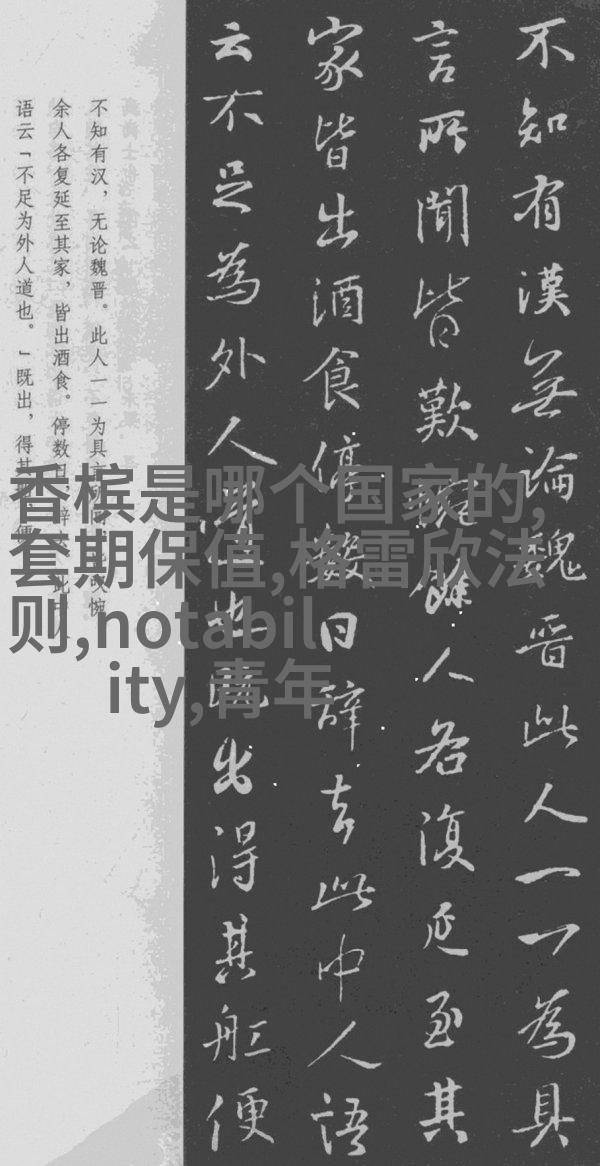 不知有漢無論魏晋此人一一為具
言所聞皆歎惋餘人各復延至其
家皆出酒食停數日辞去此中人語
云不足為外人道也既出得其舡便
不知有汉，无论魏晋。此人一一为具言所闻，皆叹惋
余人各复延至其家，皆出酒食。停数日，辞去。此中人
语云「不足为外人道也。」既出，得其
香槟是哪个国家的,
套期保值,格雷欣法
则,notabil
ity,青年